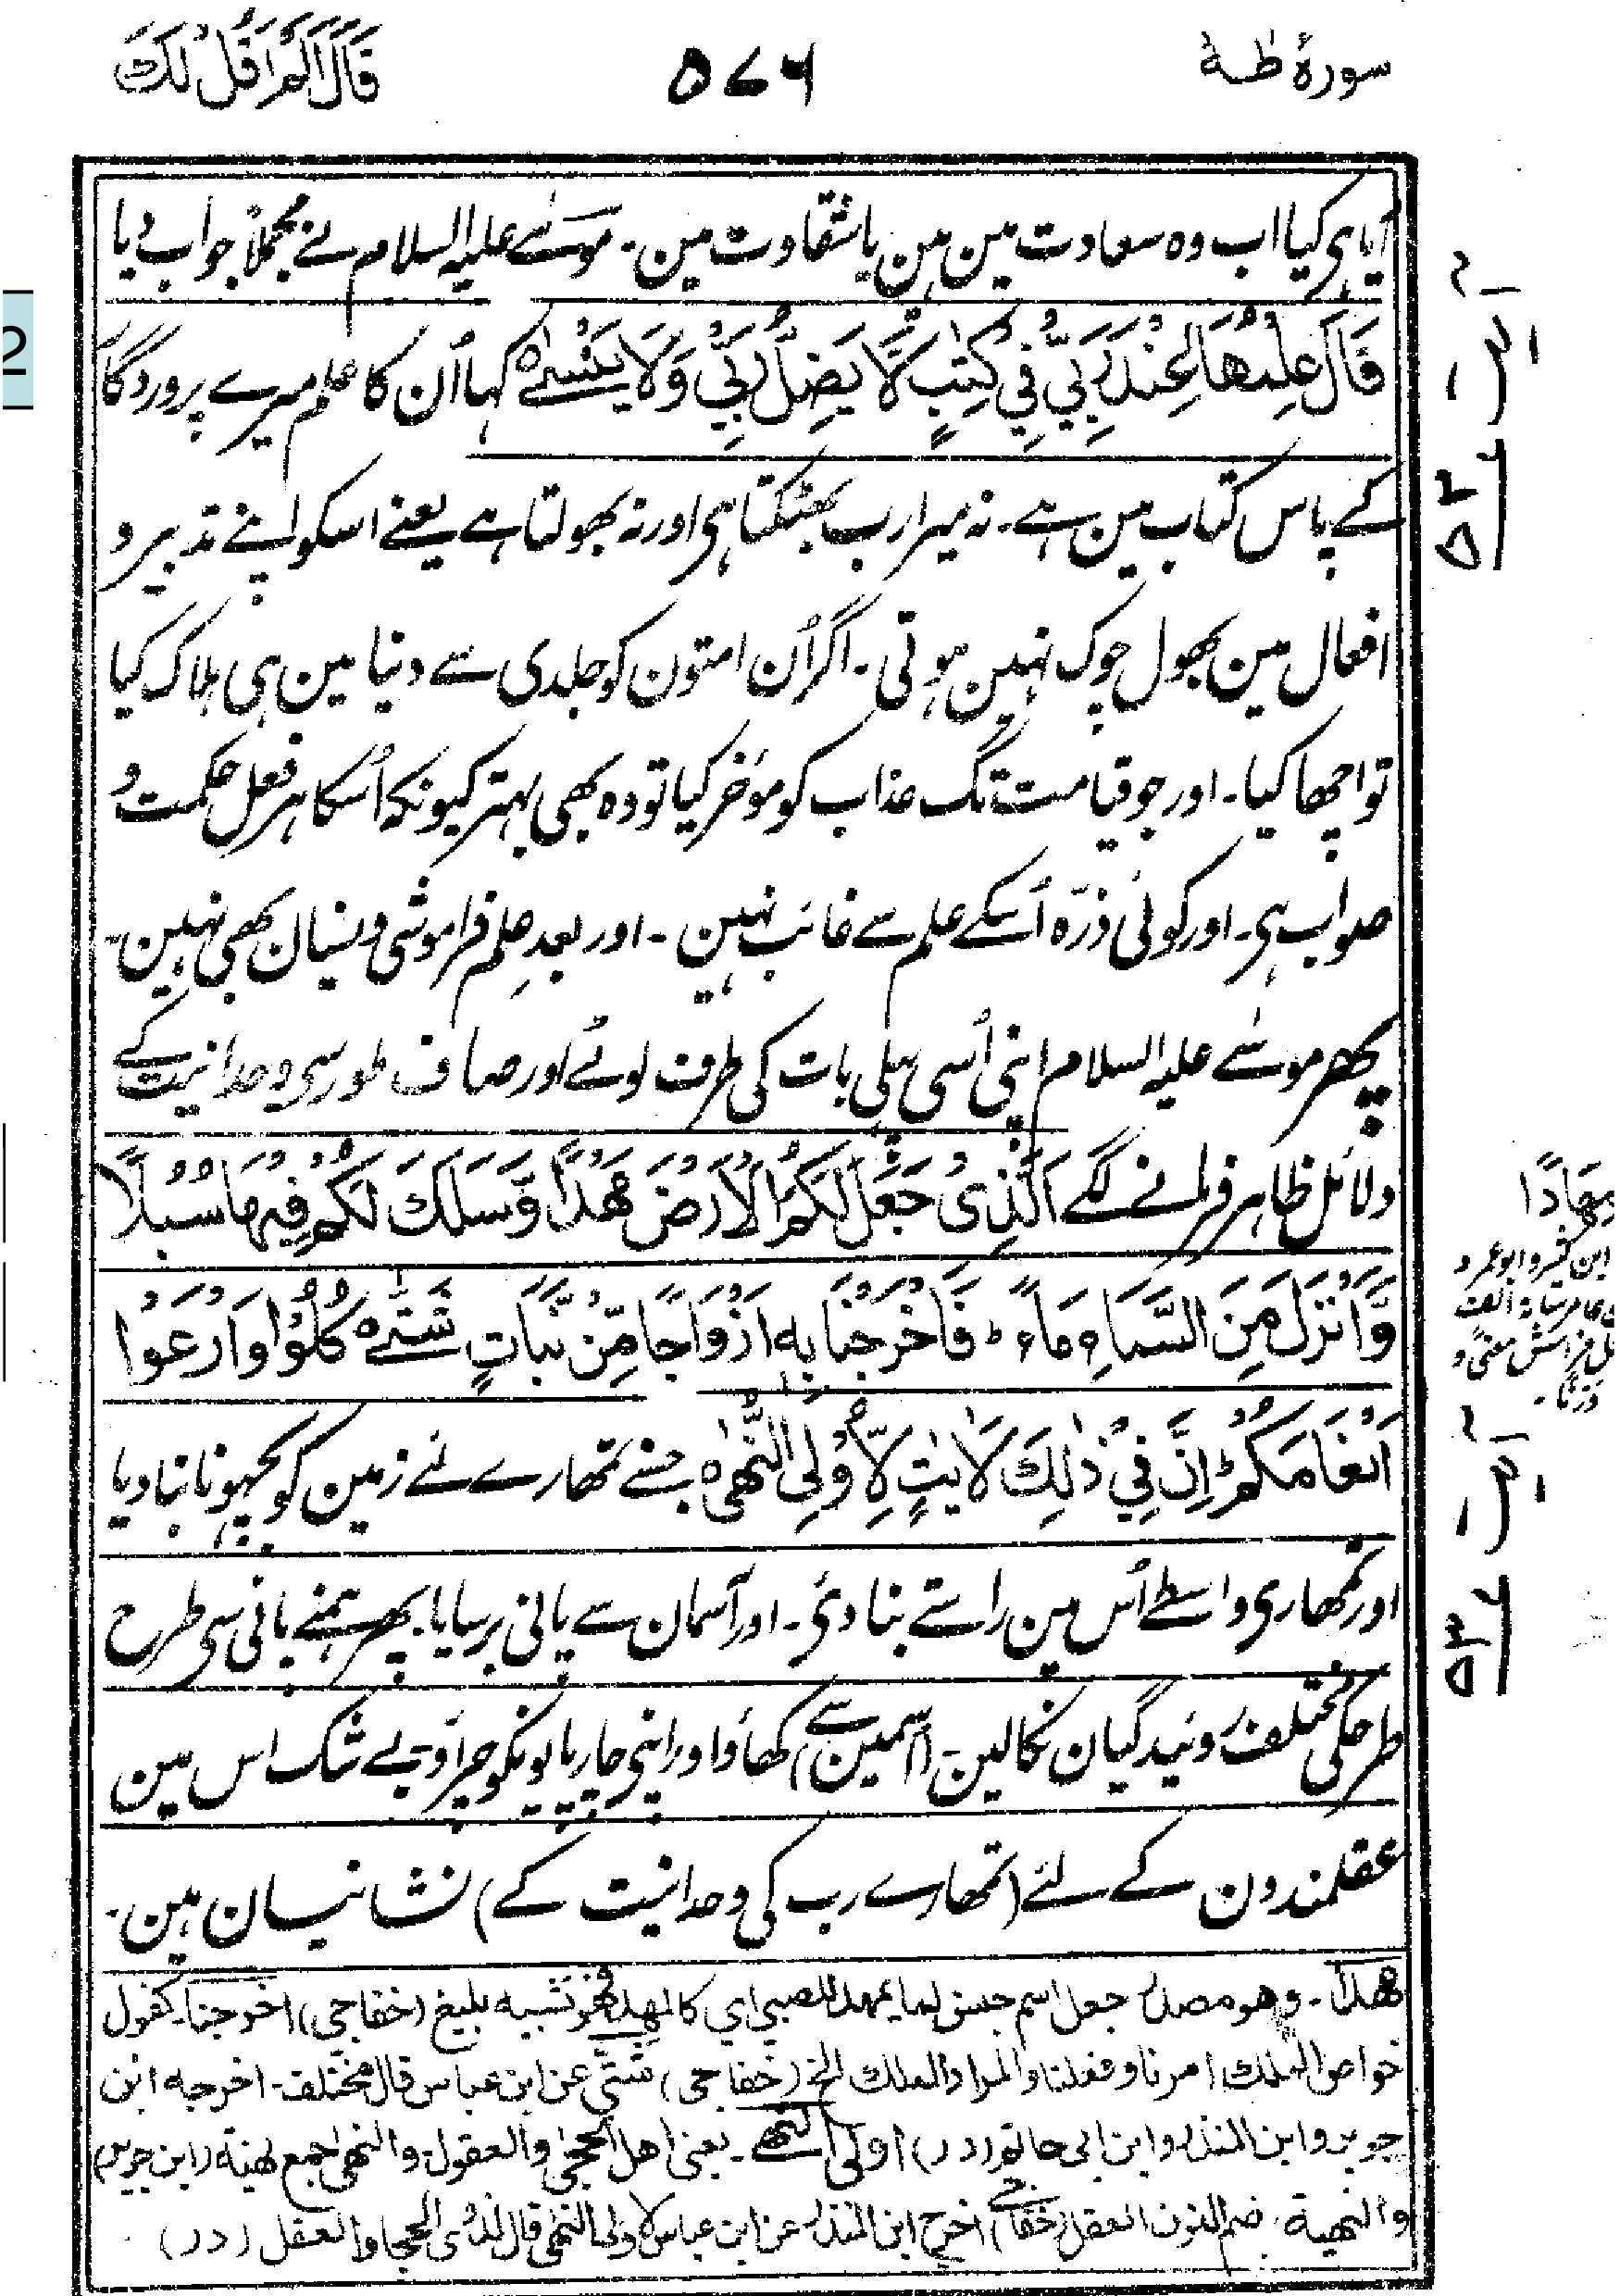 سورهٔ طٰهٰ
۵۷۶
قَالَ اَلَمْ اَقُلْ لَكَ
آیا ہی کیا اب وہ سعادت مین ہین یا شقاوت مین۔ موسٰے علیہ السلام نے مجملاً جواب دیا
قَالَ عِلْمُهَا عِنْدَ رَبِّيْ فِيْ كِتٰبٍ لَّا يَضِلُّ رَبِّيْ وَلَا يَنْسٰے ہ کہا اُن کا علم میرے پروردگار
کے پاس کتاب مین ہے۔ نہ میرا رب بھٹکتا ہی اور نہ بھولتا ہے یعنے اسکو اپنے تدبیر و
افعال مین بھول چوک نہین ہوتی۔ اگر اُن امتون کو جلدی سے دنیا مین ہی ہلاک کیا
تو اچھا کیا۔ اور جو قیامت تک عذاب کو موٗخر کیا تو وہ بھی بہتر کیونکہ اُسکا ہر فعل حکمت و
صواب ہی۔ اور کوئی ذرّہ اُسکے علم سے غائب نہین ۔ اور بعدِ علم فراموشی و نسیان بھی نہین۔
پھر موسٰے علیہ السلام اپنی اُسی پہلی بات کی طرف لوٹے اور صاف طور سی وحدانیت کے
دلائل ظاہر فرمانے لگے اَلَّذِيْ جَعَلَ لَكُمُ الْاَرْضَ مَهْدًا وَّسَلَكَ لَكُمْ فِيْهَا سُبُلًا
وَّاَنْزَلَ مِنَ السَّمَآءِ مَآءً ؕ فَاَخْرَجْنَا بِهٖ اَزْوَاجًا مِّنْ نَّبَاتٍ شَتّٰے ہ كُلُوْا وَارْعَوْا
اَنْعَامَكُمْ ؕ اِنَّ فِيْ ذٰلِكَ لَاٰيٰتٍ لِّاُولِى النُّهٰى ہ جسنے تمھارے لئے زمین کو بچھونا بنا دیا
اور تمھاری واسطے اُس مین راستے بنا دئ۔ اور آسمان سے پانی برسایا۔ پھر ہمنے پانی سی طرح
طرحکی مختلف روئیدگیان نکالین۔ (اسمین سے) کھاوٗ اور اپنی چارپایونکو چراوٗ۔ بے شک اس مین
عقلمندون کے لئے (تمھارے رب کی وحدانیت کے) نشانیان ہین۔
مھدا۔ وھو مصدر جعل اسم جنس لما یمھد للصبی ای کالمھد فھو تشبیہ بلیغ (خفاجی) اخرجنا۔ کقول
خواص الملک امرنا و فعلنا والمراد الملک الخ (خفاجی) شتی عن ابن عباس قال مختلف۔ اخرجہ ابن
جریر و ابن المنذر و ابن ابی حاتم (در) اولی النھے۔ یعنی اھل الحجی والعقول۔ والنھی جمع نھیۃ (ابن جریر)
والنھیۃ۔ بضم النون العقل (خفاجی) اخرج ابن المنذر عن ابن عباس لاولی النھی قال لذوی الحجا والعقل (در)
مِهَادًا
ابن کثیر و ابوعمرو